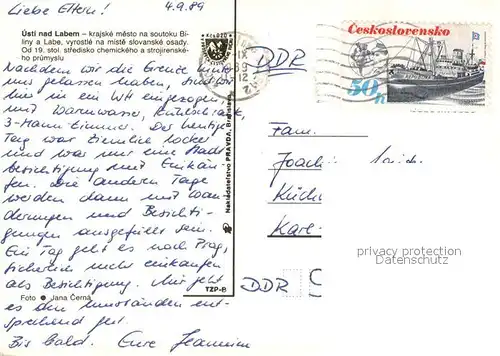 Liebe Eltern! 4.9.89
Ústí nad Labem – krajské město na soutoku Bí-
liny a Labe, vyrostlé na místě slovanské osady.
Od 19. stol. středisko chemického a strojírenské-
ho průmyslu
Nachdem wir die Grenze hinter
uns gelassen haben, sind wir
hier in ein WH eingezogen,
mit Warmwasser, Kühlschrank,
3-Mann-Zimmer. Der heutige
Tag war ziemlich locker
und war nur eine Stadt-
besichtigung mit Einkäu-
fen. Die anderen Tage
werden dann mit Wan-
derungen und Besichti-
gungen ausgefüllt sein.
Ein Tag geht es nach Prag,
sicherlich mehr einkaufen
als Besichtigung. Mir geht
es den Umständen ent-
sprechend gut.
Bis bald. Eure
Foto Jana Černá
TZP-B
Nakladatelstvo PRAVDA, Bratislava
Československo
50h
DDR
Fam.
Joachim
Karl-
DDR
privacy protection
Datenschutz